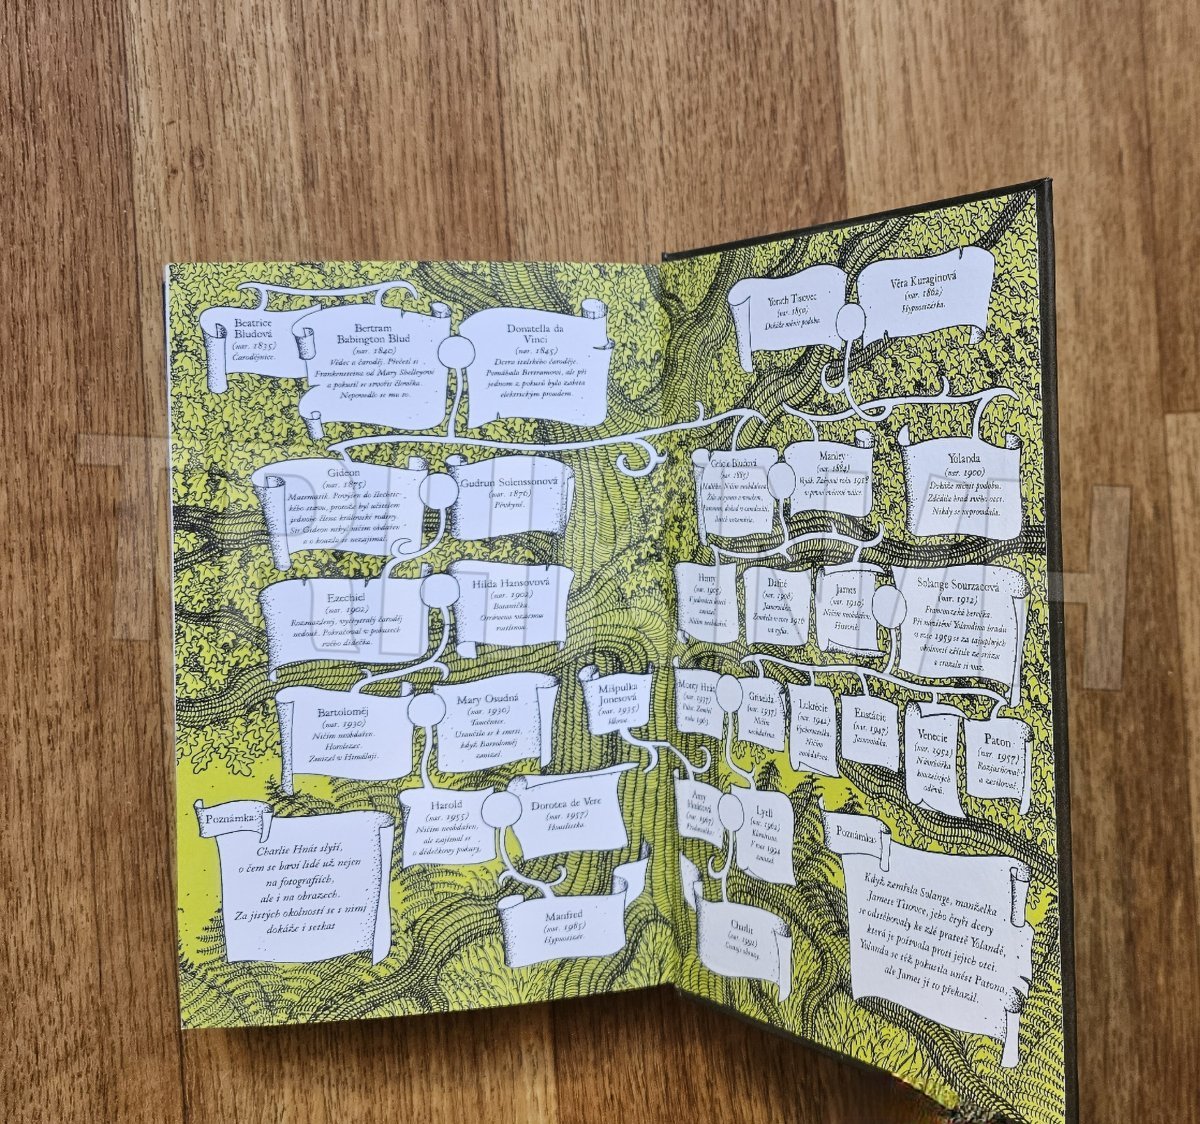 Beatrice
Bludová
(nar. 1835)
Čarodějnice.
Bertram
Babington Blud
(nar. 1840)
Vědec a čaroděj. Přečetl si
Frankensteina od Mary Shelleyové
a pokusil se stvořit člověka.
Nepovedlo se mu to.
Donatella da
Vinci
(nar. 1845)
Dcera italského čaroděje.
Pomáhala Bertramovi, ale při
jednom z pokusů byla zabita
elektrickým proudem.
Yorath Tisovec
(nar. 1850)
Dokáže měnit podobu.
Věra Kuraginová
(nar. 1862)
Hypnotizérka.
Gideon
(nar. 1875)
Matematik. Povýšen do šlechtic-
kého stavu, protože byl učitelem
jednoho člena královské rodiny.
Sir Gideon nebyl ničím obdařen
a o kouzla se nezajímal.
Gudrun Solenssonová
(nar. 1876)
Pěvkyně.
Grace Bludová
(nar. 1885)
Malířka. Ničím neobdařena.
Mandry
Voják.
v první světové válce.
Yolanda
(nar. 1900)
Dokáže měnit podobu.
Zdědila hrad svého otce.
Nikdy se neprovdala.
Ezechiel
(nar. 1902)
Rozmazlený, vychytralý čaroděj
nedouk. Pokračoval v pokusech
svého dědečka.
Hilda Hansovová
(nar. 1902)
Botanička.
Otrávena vzácnou
rostlinou.
Henry
Ničím neobdařen.
Dafné
(nar. 1908)
James
(nar. 1910)
Ničím neobdařen.
Historik.
Solange Sourzacová
(nar. 1912)
Francouzská herečka.
Při návštěvě Yolandina hradu
v roce 1959 se za záhadných
okolností zřítila ze srázu
a srazila si vaz.
Bartoloměj
(nar. 1930)
Ničím neobdařen.
Horolezec.
Zmizel v Himáláji.
Mary Osudná
(nar. 1930)
Tanečnice.
Utančila se k smrti,
když Bartoloměj
zmizel.
Mišpulka
Jonesová
(nar. 1935)
Monty Hnát
(nar. 1937)
Pilot. Zemřel
roku 1963.
Griselda
(nar. 1937)
Ničím
neobdařena.
Lukrécie
(nar. 1942)
Vychovatelka.
Ničím
neobdařena.
Eustácie
(nar. 1947)
Jasnovidka.
Venecie
(nar. 1952)
Návrhářka
kouzelných
oděvů.
Paton
(nar. 1957)
Rozsvěcovač
a zesilovač.
Harold
(nar. 1955)
Ničím neobdařen,
ale zajímal se
o dědečkovy pokusy.
Dorotea de Vere
(nar. 1957)
Houslistka.
Amy
(nar. 1967)
Lyell
(nar. 1962)
Klavírista.
V roce 1994
zmizel.
Manfred
(nar. 1985)
Hypnotizér.
Charlie
(nar. 1992)
Poznámka:
Charlie Hnát slyší,
o čem se baví lidé už nejen
na fotografiích,
ale i na obrazech.
Za jistých okolností se s nimi
dokáže i setkat
Poznámka:
Když zemřela Solange, manželka
Jamese Tisovce, jeho čtyři dcery
se odstěhovaly ke zlé pratetě Yolandě,
která je poštvala proti jejich otci.
Yolanda se též pokusila unést Patona,
ale James jí to překazil.